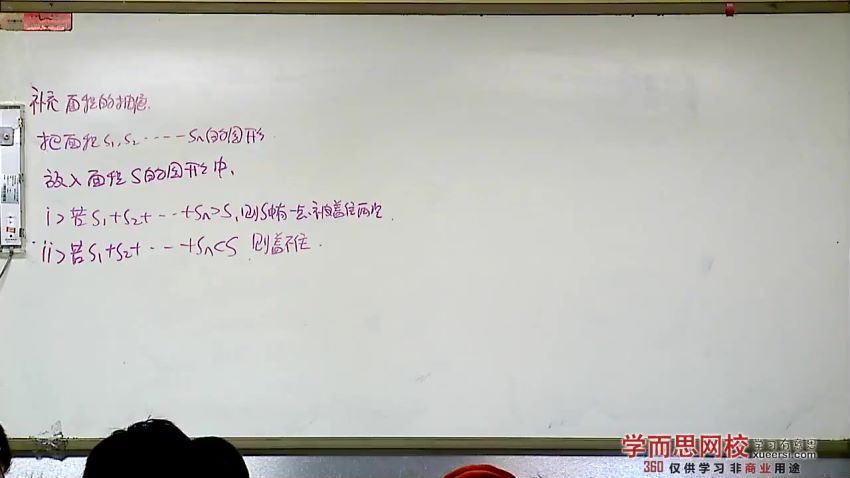 补充 面积的抽屉
把面积S₁,S₂·····Sₙ的图形
放入面积S的图形中,
i>若S₁+S₂+···+Sₙ>S,则S中有一点被盖住两次.
ii>若S₁+S₂+···+Sₙ<S 则盖不住.
学而思网校 学习有意思
xueersi.com
360 仅供学习 非商业用途